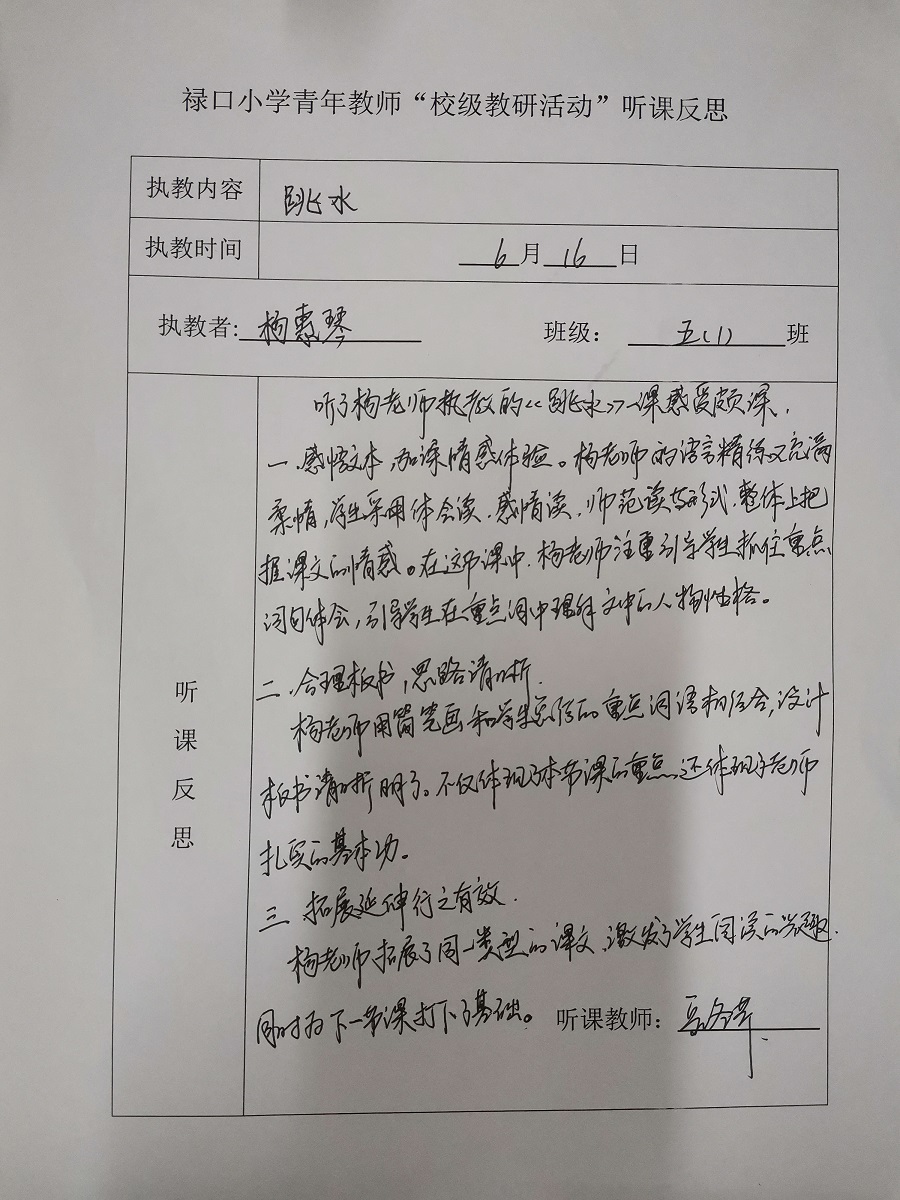 禄口小学青年教师“校级教研活动”听课反思
执教内容 跳水
执教时间 6月16日
执教者: 杨惠琴 班级: 五(1) 班
听了杨老师执教的《跳水》一课感受颇深,
一、感悟文本,加深情感体验。杨老师的语言精练又充满
柔情,学生采用体会读、感情读、师范读等形式,整体上把
握课文的情感。在这节课中,杨老师注重引导学生抓住重点
词句体会,引导学生在重点词中理解文中的人物性格。
二、合理板书,思路清晰.
杨老师用简笔画和学生总结的重点词语相结合,设计
板书清晰明了。不仅体现了本节课的重点,还体现了老师
扎实的基本功。
三、拓展延伸行之有效.
杨老师拓展了同一类型的课文,激发了学生阅读的兴趣.
同时为下一节课打下了基础。 听课教师:
听课反思